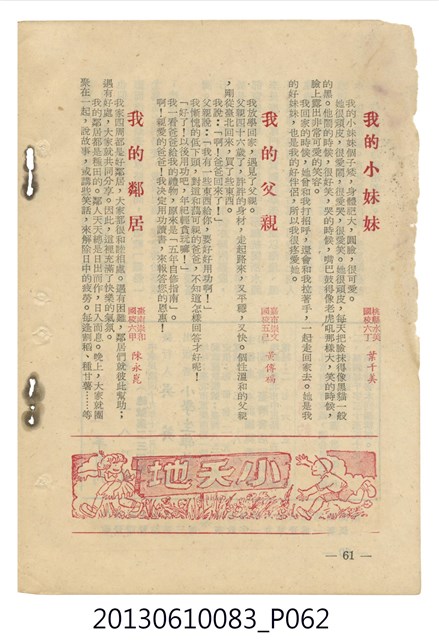 我的小妹妹
國校六丁
葉千美
我的小妹妹個子矮,身體肥大,圓臉,很可愛。
她很頑皮,很愛鬧,很愛哭,很愛笑。她很頑皮,每天把臉抹得像黑貓一般
的黑。他鬧的時候,很好笑,哭的時候,嘴巴鼓得像老虎吼那樣大,笑的時候,
臉上露出非常可愛的笑容。
我回家的時候,她會向我打招呼,還會和我拉著手,一起走回家去。她是我
的好妹妹,也是我的好伴侶,所以我很疼愛她。
我的父親
嘉義崇文
國校五己
黃傳福
我放學回家,遇見了父親。
父親四十六歲了,胖胖的身材,走起路來,又平穩,又快。個性溫和的父親
,剛從臺北回來,買了些東西。
我說:「啊!爸爸回來了!」
父親說:「我有一些東西給你,要好好用功啊!」
我慚愧的低下頭,對這和藹可親的爸爸,不知道怎樣回答才好呢!
「好了!好好用功,年紀不小了,不要再貪玩囉!」
我一看爸爸給我的禮物,原來是「五年自修指南」。
啊!親愛的爸爸!我決定用功讀書,來報答您的恩惠!
我的鄰居
國校六甲
陳永昆
我家四周都是好鄰居,大家都很和睦相處。遇有困難,鄰居們就彼此幫助;
遇有好處,大家就共同分享。因此,這裡充滿了快樂的氣氛。
我的鄰居都是種田的。鄰人天天總是日出而作,日入而息。晚上,大家就團
聚在一起,說故事,或講些笑話,來解除日中的疲勞。每逢割稻、種甘薯……等
小天地
— 61 —
20130610083_P062